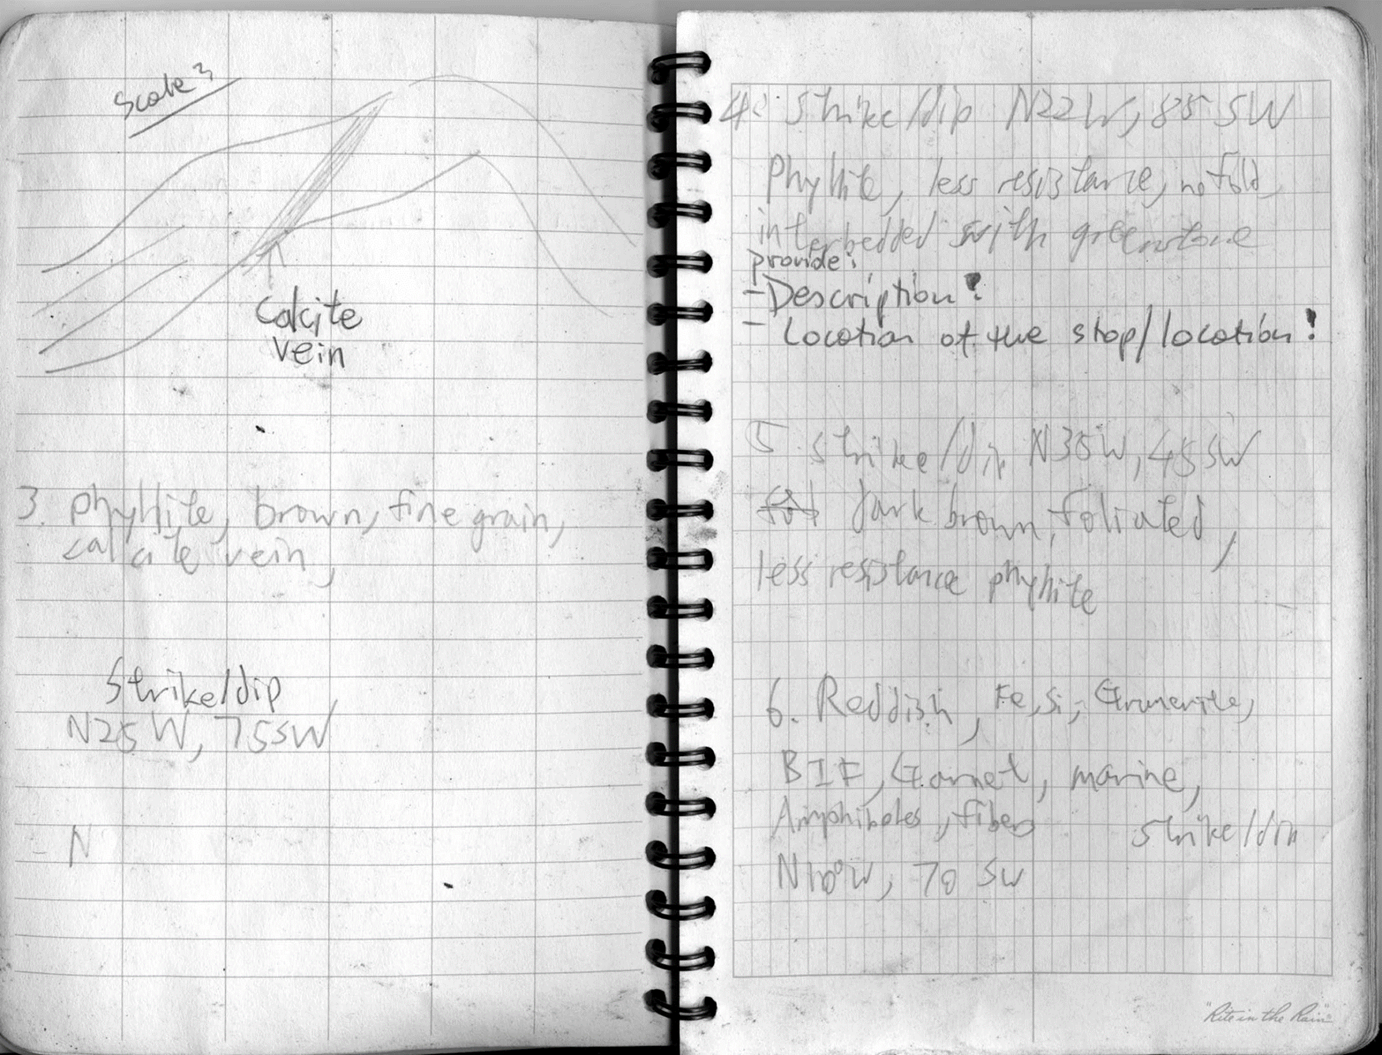 Scale?
Calcite
vein
3. phyllite, brown, fine grain,
calcite vein,
Strike/dip
N25W, 75SW
- N
4: Strike/dip N22W, 85 SW
Phyllite, less resistance, no fold,
interbedded with greenstone
provide:
- Description!
- Location of the stop/location!
5 Strike/dip N35W, 45SW
dark brown, foliated,
less resistance phyllite
6. Reddish, Fe, Si, Grunerite,
BIF, Garnet, marine,
Amphiboles, fibers
strike/dip
N10°W, 70 SW
"Rite in the Rain"